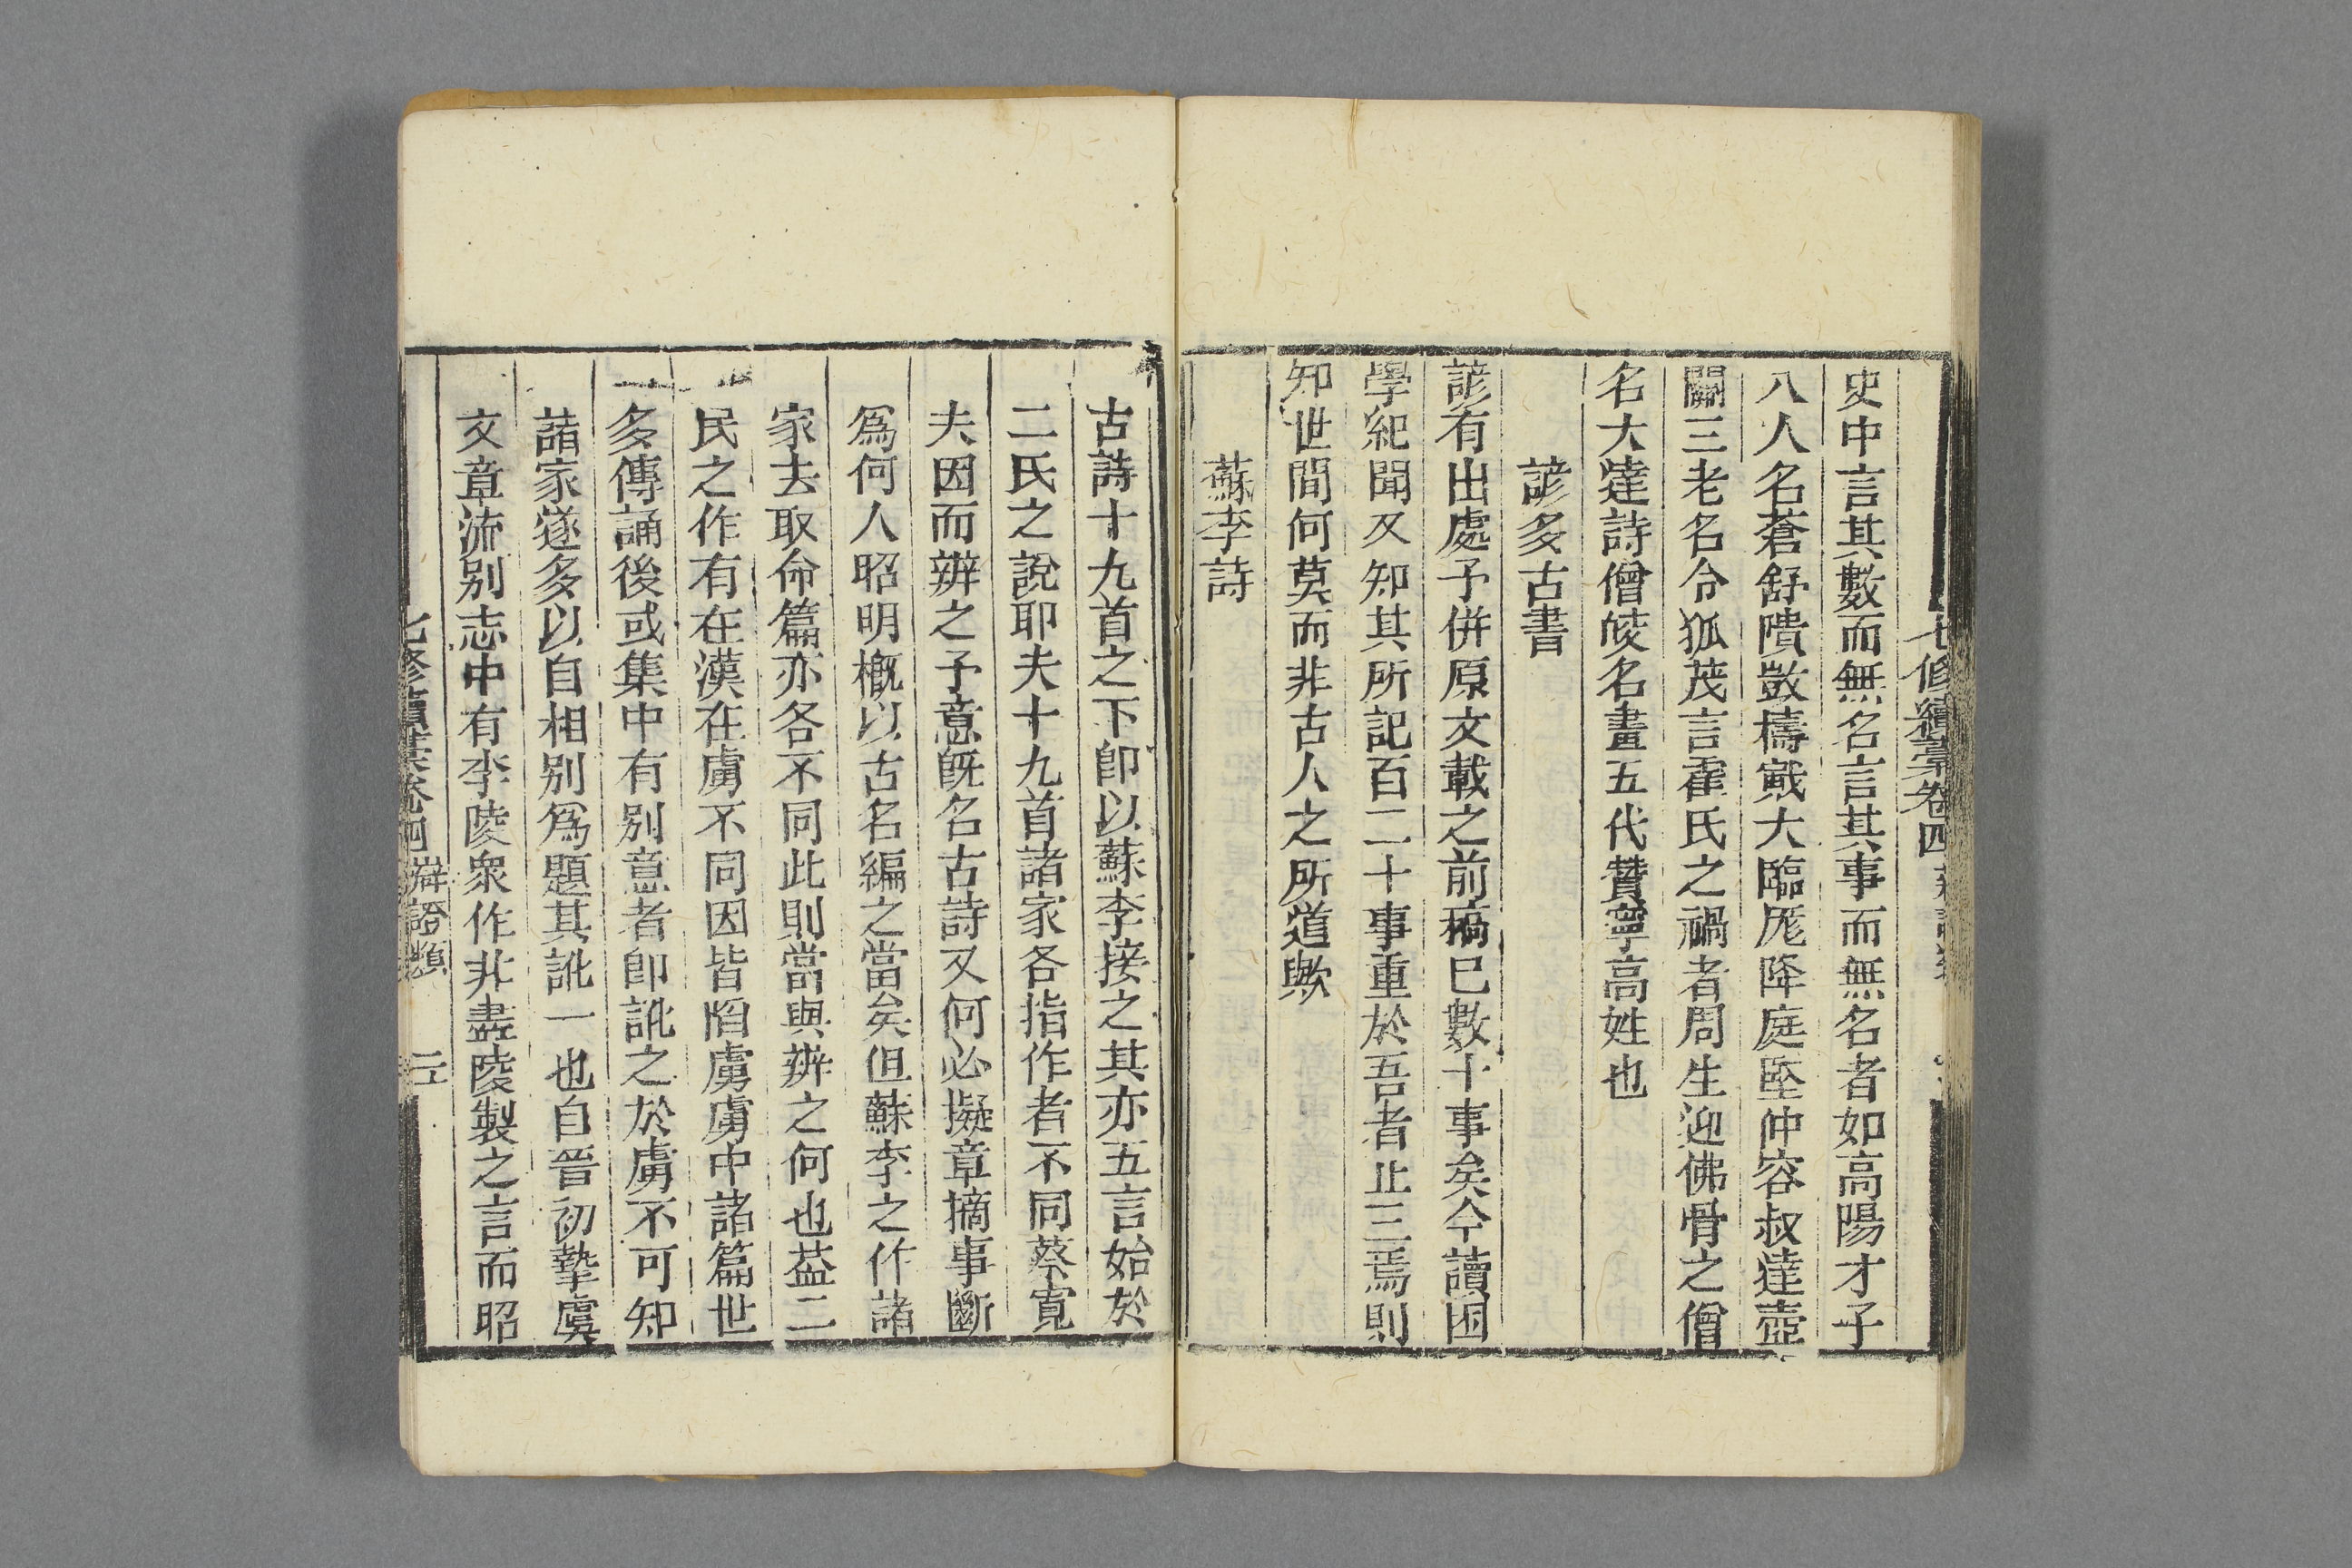 七修續藁卷四
史中言其數而無名言其事而無名者如高陽才子
八人名蒼舒隤敳檮戭大臨厖降庭堅仲容叔達壺
關三老名令狐茂言霍氏之禍者周生迎佛骨之僧
名大達詩僧皎名晝五代贊寧高姓也
諺多古書
諺有出處予併原文載之前稿已數十事矣今讀困
學紀聞又知其所記百二十事重於吾者止三焉則
知世間何莫而非古人之所道歟
蘇李詩
古詩十九首之下卽以蘇李接之其亦五言始於
二氏之說耶夫十九首諸家各指作者不同蔡寬
夫因而辨之予意旣名古詩又何必擬章摘事斷
爲何人昭明槪以古名編之當矣但蘇李之作諸
家去取命篇亦各不同此則當與辨之何也益二
民之作有在漢在虜不同因皆陷虜虜中諸篇世
多傳誦後或集中有別意者卽訛之於虜不可知
諸家遂多以自相別爲題其訛一也自晉初摯虞
文章流别志中有李陵衆作非盡陵製之言而昭
七修續藁卷四 辯證類 二